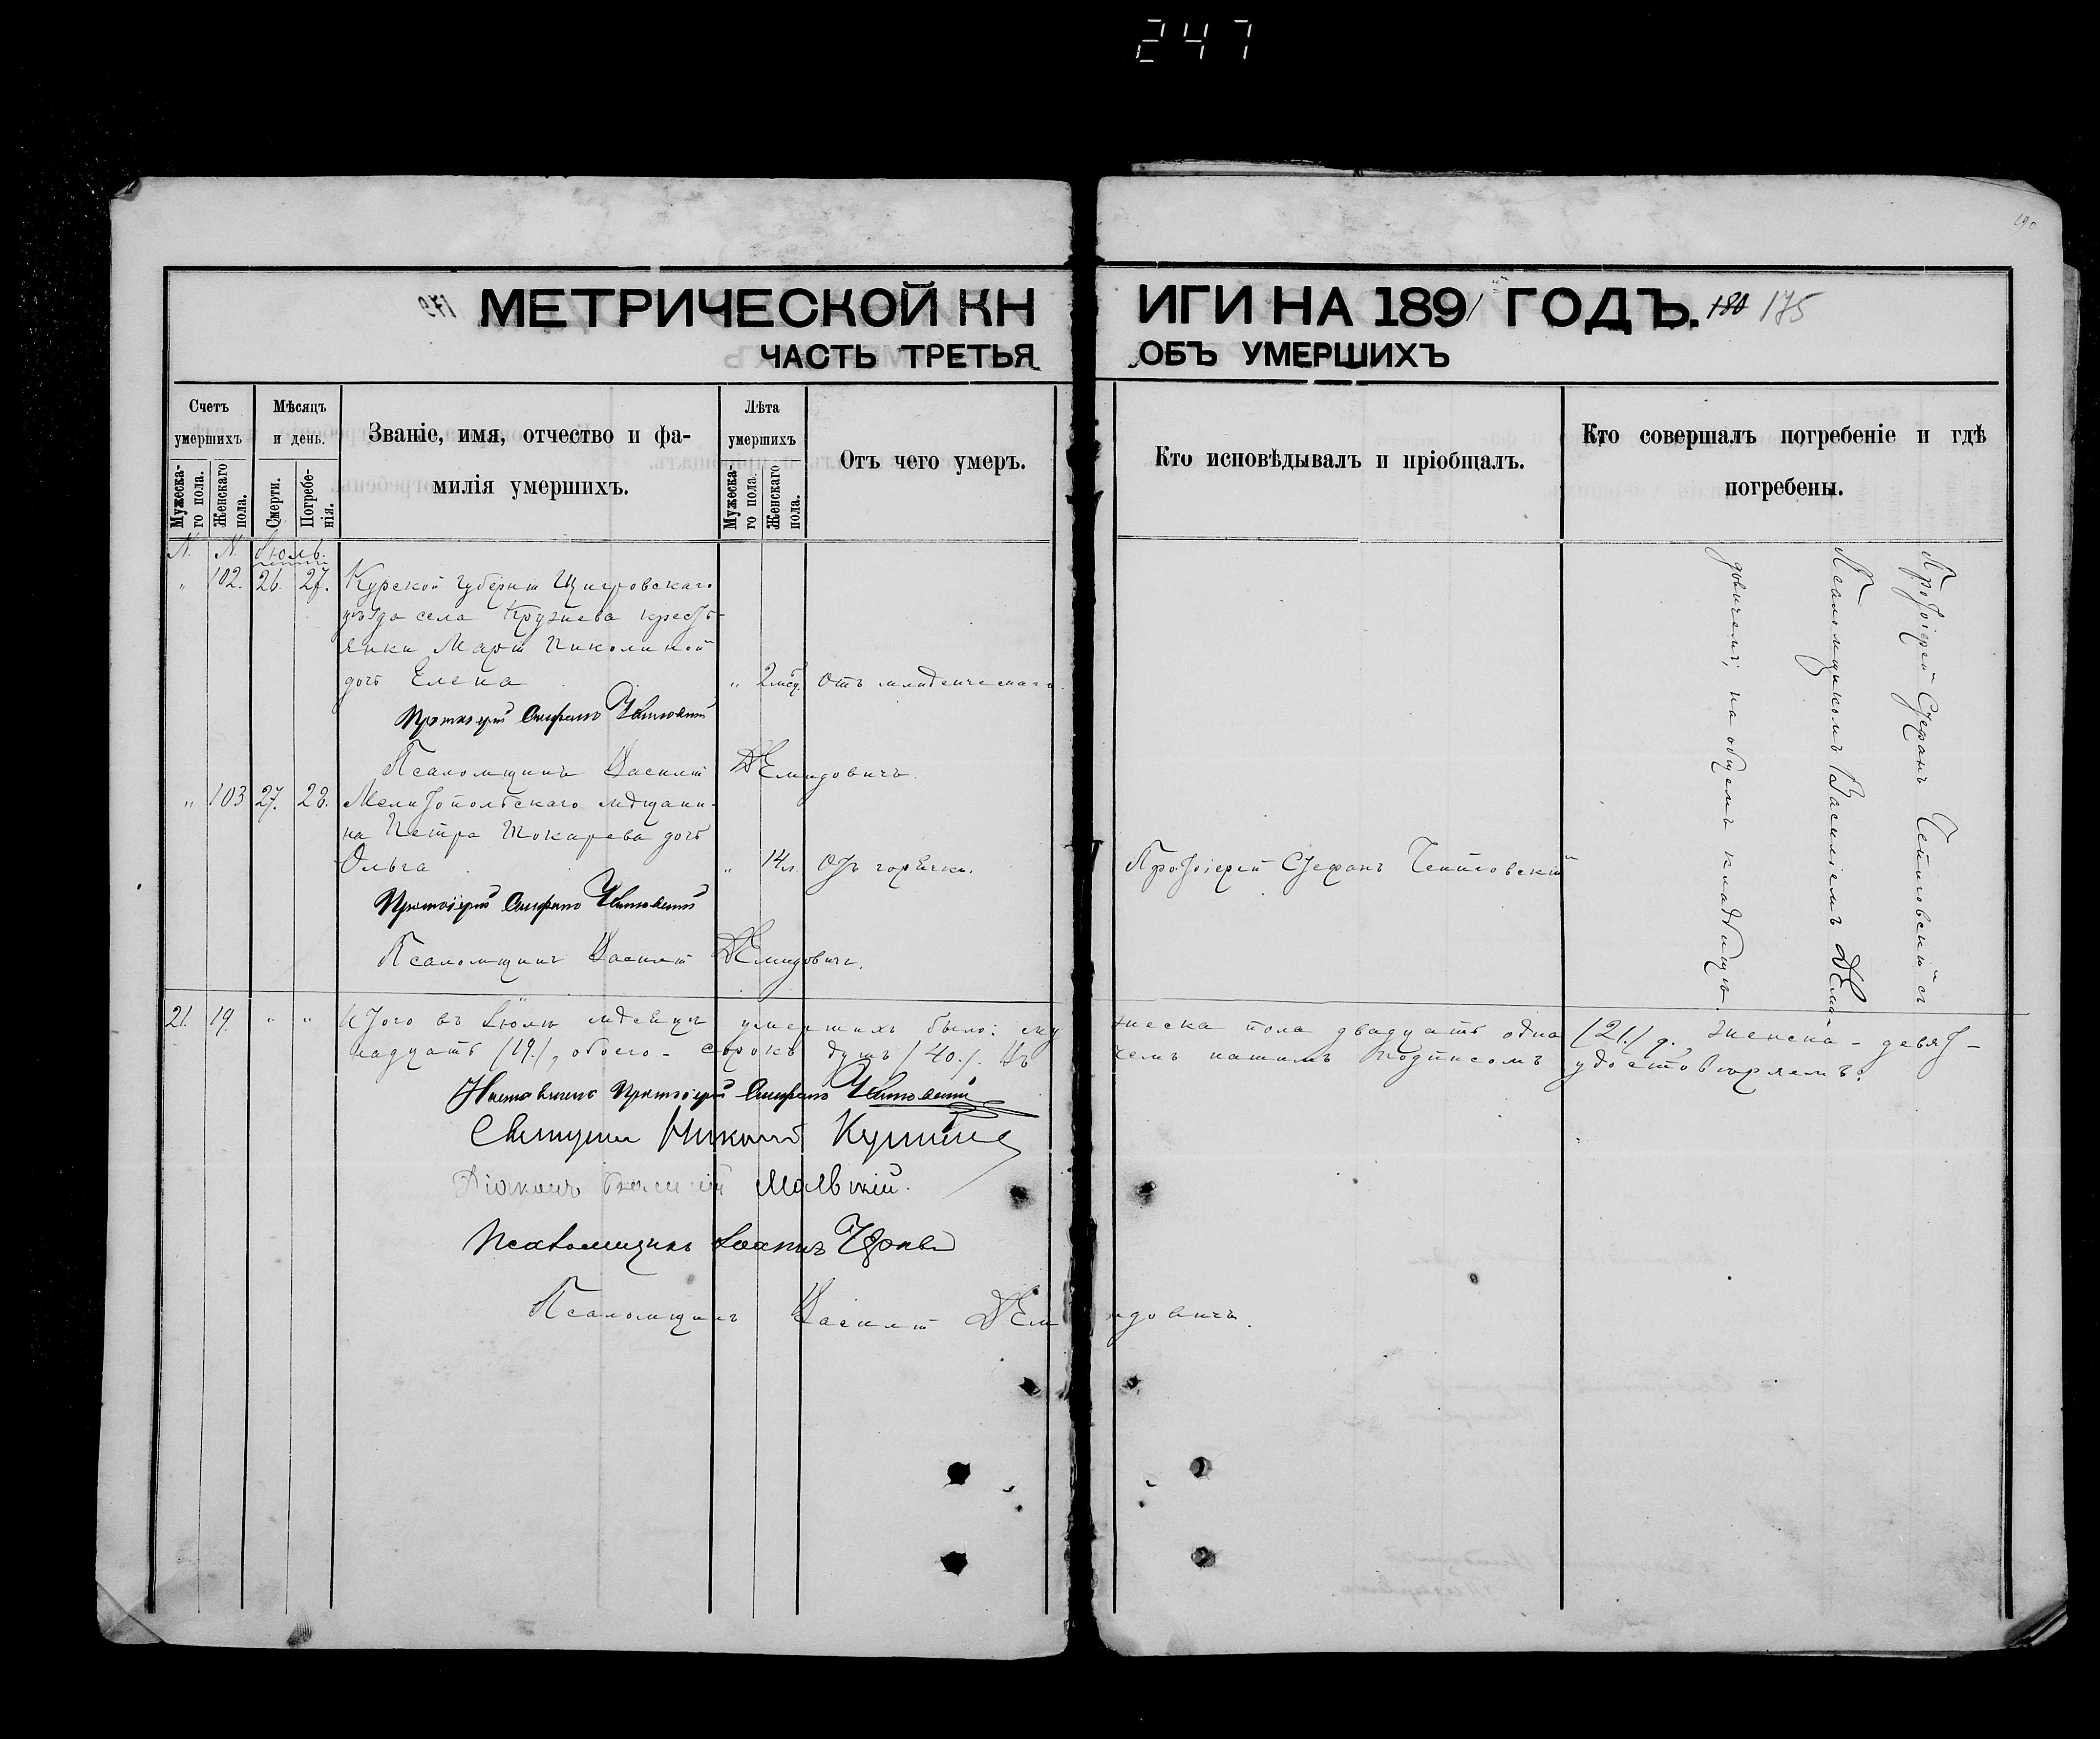 247
190
МЕТРИЧЕСКОЙ КНИГИ НА 1891 ГОДЪ. 180 175
ЧАСТЬ ТРЕТЬЯ ОБЪ УМЕРШИХЪ
Счетъ умершихъ
Мужеска-го пола.
Женскаго пола.
Мѣсяцъ и день.
Смерти.
Погребе-нія.
Званіе, имя, отчество и фа-
милія умершихъ.
Лѣта умершихъ
Мужеска-го пола.
Женскаго пола.
Отъ чего умеръ.
Кто исповѣдывалъ и пріобщалъ.
Кто совершалъ погребеніе и гдѣ
погребены.
N. N. Іюль.
" 102. 26. 27. Курской губерніи Щигровскаго
уѣзда села крестъ-
янки Маріи Николиной
дочь Елена " 2 мѣс. Отъ младенческаго
Протоіерей Стефанъ
Псаломщикъ Василій Демидовичъ.
" 103 27. 28. Мелитопольскаго мѣщани-
на Петра Токарева дочь
Ольга " 14 л. Отъ горячки. Протоіерей Стефанъ
Протоіерей Стефанъ
Псаломщикъ Василій Демидовичъ.
Протоіерей Стефанъ съ
Псаломщикомъ Василіемъ Деми-
довичемъ, на общемъ кладбищѣ.
21. 19. " " Итого въ Іюлѣ мѣсяцѣ умершихъ было: мужеска пола двадцать одна (21.) д. женска - девят-
надцать (19.), обоего - сорокъ душъ (40.). Въ чемъ нашимъ подписомъ удостовѣряемъ:
Настоятель Протоіерей Стефанъ
Священникъ Николай
Діаконъ
Псаломщикъ Іоаннъ
Псаломщикъ Василій Демидовичъ.